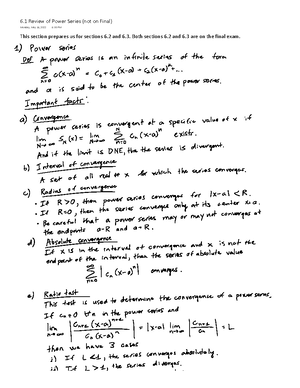 6.1 Review of Power Series (not on Final)
This section prepares us for sections 6.2 and 6.3. Both sections 6.2 and 6.3 are on the final exam.
1) Power series
Def A power series is an infinite series of the form
∞ Σ n=0 C(x-a)^n = C₀ + C₁(x-a) + C₂(x-a)² + ...
and a is said to be the center of the power series.
Important facts:
a) Convergence
A power series is convergent at a specific value of x if
lim N→∞ S_N(x) = lim N→∞ N Σ n=0 C_n(x-a)^n exists.
And if the limit is DNE, the the series is divergent.
b) Interval of convergence
A set of all real #s x for which the series converges.
c) Radius of convergence
• If R>0, then power series converges for |x-a| < R.
• If R=0, then the series converges only at its center x=a.
• Be careful that a power series may or may not converges at
the endpoints a-R and a+R.
d) Absolute convergence
If x is in the interval of convergence and x is not the
endpoint of the interval, then the series of absolute value
∞ Σ n=0 |C_n(x-a)^n| converges.
e) Ratio test
This test is used to determine the convergence of a power series.
If C_n≠0 ∀n in the power series and
lim n→∞ |C_{n+1}(x-a)^{n+1} / C_n(x-a)^n| = |x-a| lim n→∞ |C_{n+1}/C_n| = L
then we have 3 cases
i) If L<1, the series converges absolutely.
ii) If L>1, the series diverges.